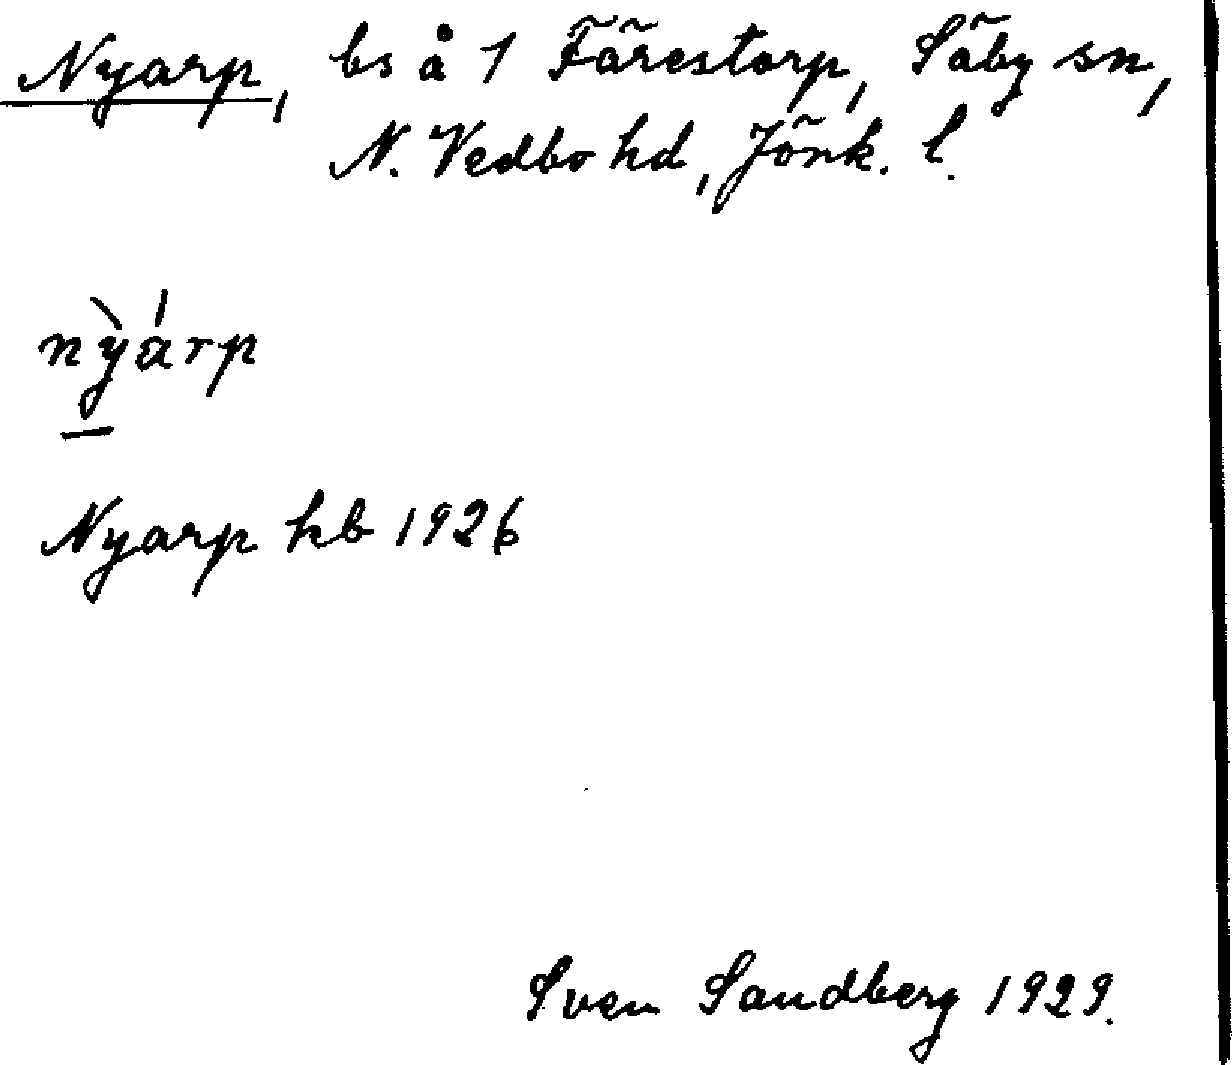 Nyarp, bs å 1 Färestorp, Säby sn,
N. Vedbo hd, Jönk. l.
nỳárp
Nyarp kb 1926
Sven Sandberg 1929.